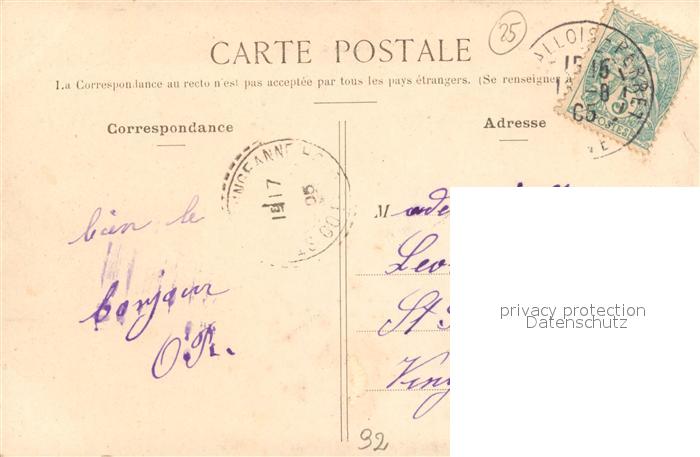 25
CARTE POSTALE
La Correspondance au recto n'est pas acceptée par tous les pays étrangers. (Se renseigner à
Correspondance
Adresse
LLOIS-PERRET
15 15
8
05
POSTES
INGEANNE
17
CÔTE
bien le
bonjour
M
Leo
St
Ving
privacy protection
Datenschutz
92